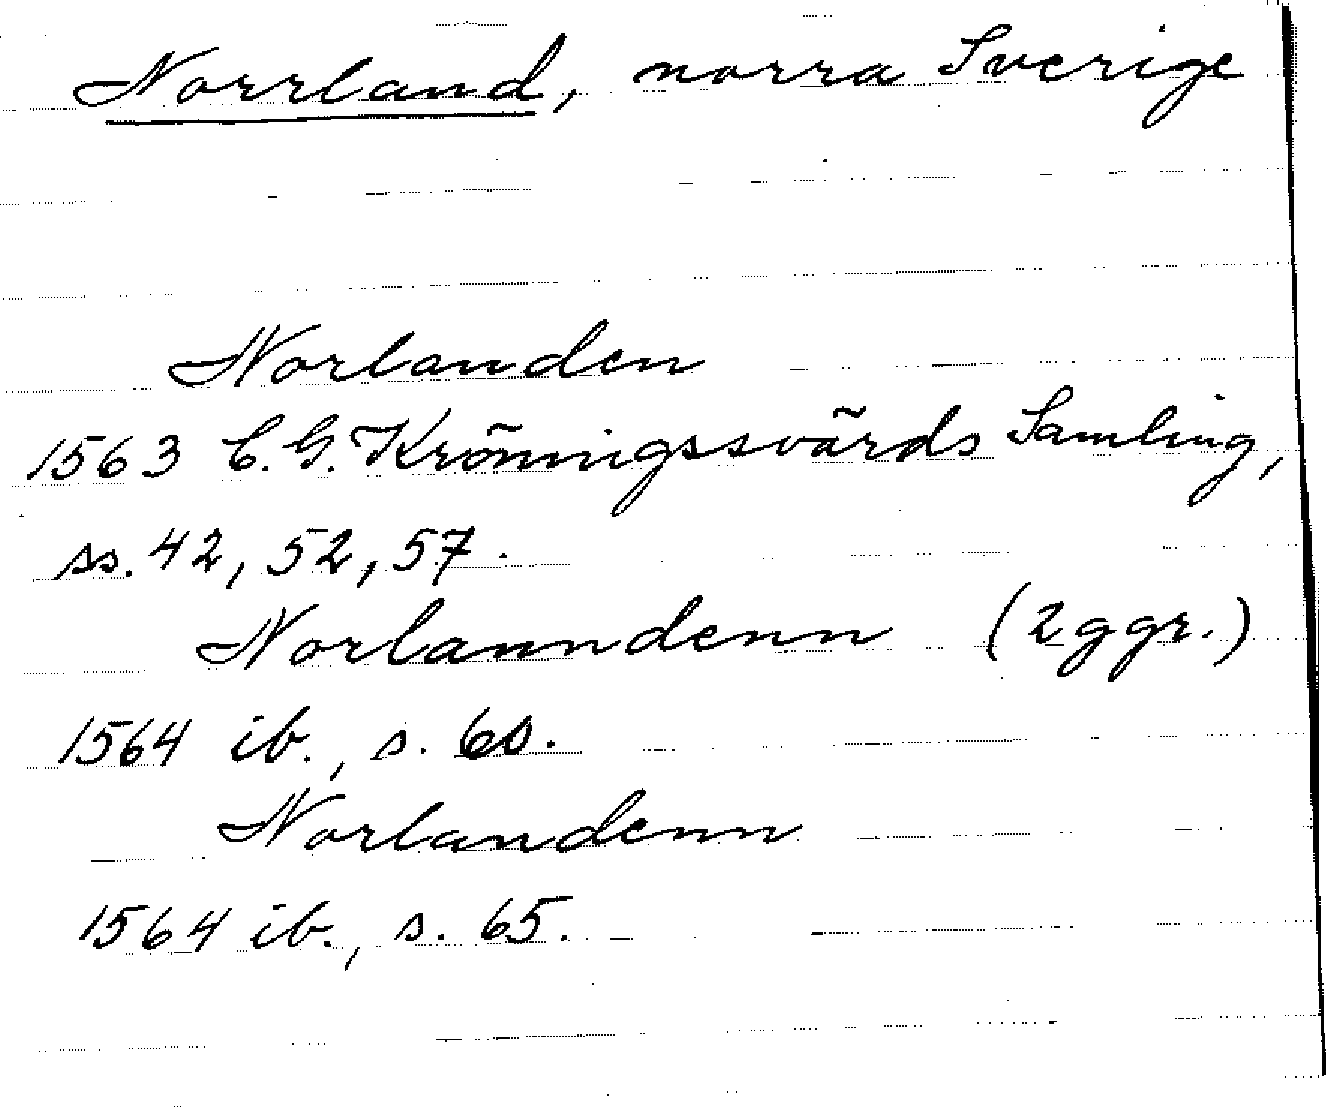 Norrland, norra Sverige
Norlanden
1563 C.G. Kröningssvärds Samling,
ss. 42, 52, 57.
Norlanndenn (2 ggr.)
1564 ib., s. 60.
Norlandenn
1564 ib., s. 65.